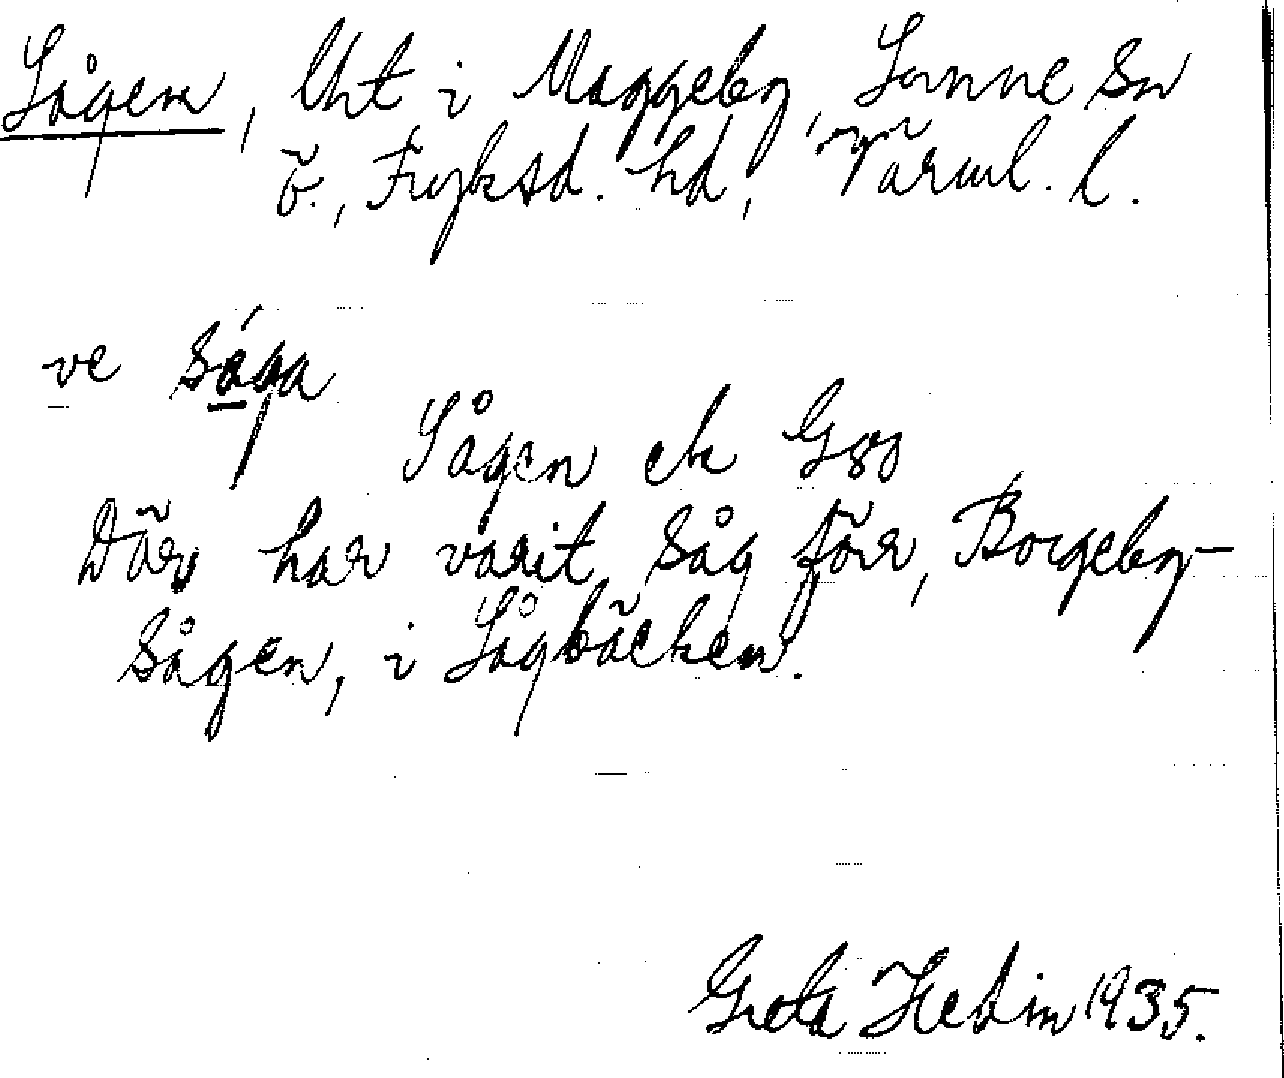 Sågen, lht i Maggeby, Sunne sn
ö., Fryksd. hd, Värml. l.
ve såga
Sågen ek G80
Där har varit såg förr, Borgeby-
sågen, i Sågbäcken.
Greta Hedin 1935.